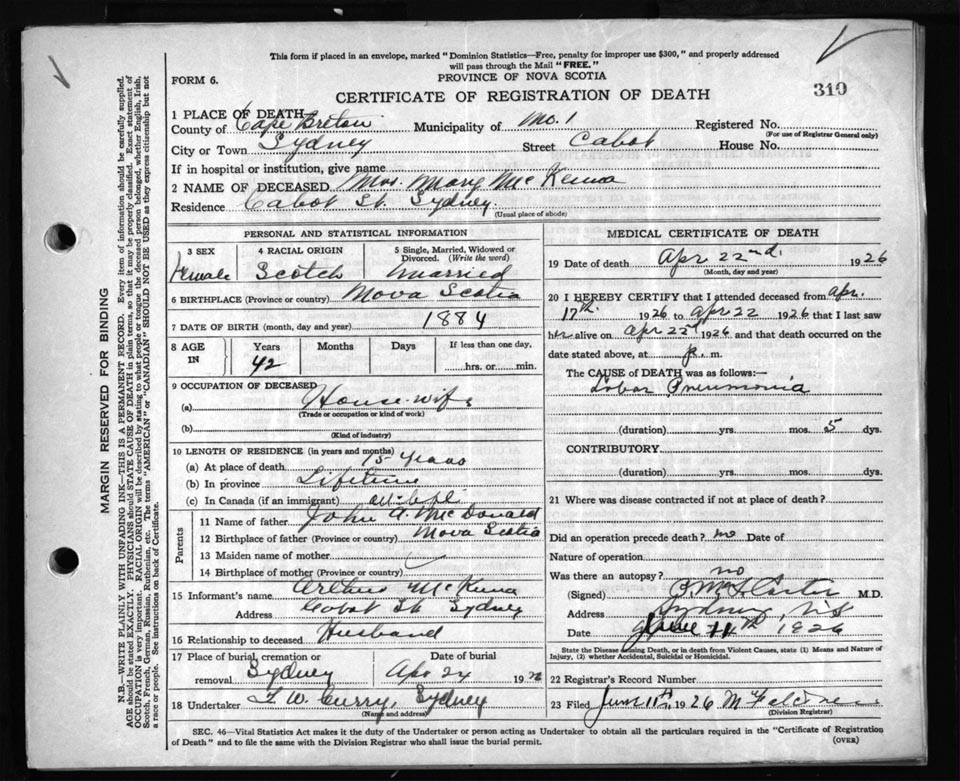 This form if placed in an envelope, marked "Dominion Statistics—Free, penalty for improper use $300," and properly addressed
will pass through the Mail "FREE."
FORM 6.
PROVINCE OF NOVA SCOTIA
310
CERTIFICATE OF REGISTRATION OF DEATH
1 PLACE OF DEATH
County of Cape Breton Municipality of No. 1 Registered No.
(For use of Registrar General only)
City or Town Sydney Street Cabot House No.
If in hospital or institution, give name
2 NAME OF DECEASED Mrs. Mary McKenna
Residence Cabot St. Sydney.
(Usual place of abode)
PERSONAL AND STATISTICAL INFORMATION
3 SEX 4 RACIAL ORIGIN 5 Single, Married, Widowed or Divorced. (Write the word)
Female Scotch Married
6 BIRTHPLACE (Province or country) Nova Scotia
7 DATE OF BIRTH (month, day and year) 1884
8 AGE IN Years Months Days If less than one day,
42 hrs. or min.
9 OCCUPATION OF DECEASED
(a) House-wife
(Trade or occupation or kind of work)
(b)
(Kind of industry)
10 LENGTH OF RESIDENCE (in years and months)
(a) At place of death 15 years
(b) In province Lifetime
(c) In Canada (if an immigrant)
Parents
11 Name of father John A. McDonald
12 Birthplace of father (Province or country) Nova Scotia
13 Maiden name of mother
14 Birthplace of mother (Province or country)
15 Informant's name Arthur McKenna
Address Cabot St. Sydney
16 Relationship to deceased Husband
17 Place of burial, cremation or removal Date of burial
Sydney Apr 24 1926
18 Undertaker F. W. Curry, Sydney
(Name and address)
MEDICAL CERTIFICATE OF DEATH
19 Date of death Apr 22nd. 1926
(Month, day and year)
20 I HEREBY CERTIFY that I attended deceased from Apr.
17th 1926 to Apr 22 1926 that I last saw
her alive on Apr 22d 1926 and that death occurred on the
date stated above, at p. m.
The CAUSE OF DEATH was as follows:—
Lobar Pneumonia
(duration) yrs. mos. 5 dys.
CONTRIBUTORY
(duration) yrs. mos. dys.
21 Where was disease contracted if not at place of death?
Did an operation precede death? no Date of
Nature of operation
Was there an autopsy? no
(Signed) M.D.
Address Sydney N.S
Date June 11th 1926
State the Disease causing Death, or in death from Violent Causes, state (1) Means and Nature of
Injury, (2) whether Accidental, Suicidal or Homicidal.
22 Registrar's Record Number
23 Filed June 11th 1926
(Division Registrar)
SEC. 46—Vital Statistics Act makes it the duty of the Undertaker or person acting as Undertaker to obtain all the particulars required in the "Certificate of Registration
of Death" and to file the same with the Division Registrar who shall issue the burial permit.
(OVER)
MARGIN RESERVED FOR BINDING
N.B.—WRITE PLAINLY WITH UNFADING INK—THIS IS A PERMANENT RECORD. Every item of information should be carefully supplied.
AGE should be stated EXACTLY. PHYSICIANS should STATE CAUSE OF DEATH in plain terms, so that it may be properly classified. Exact statement of
OCCUPATION is very important. RACIAL ORIGIN will be described by stating to what people or tongue the deceased person belonged, whether English, Irish,
Scotch, French, German, Russian, Ruthenian, etc. The terms "AMERICAN" or "CANADIAN" SHOULD NOT BE USED as they express citizenship but not
a race or people. See instructions on back of Certificate.